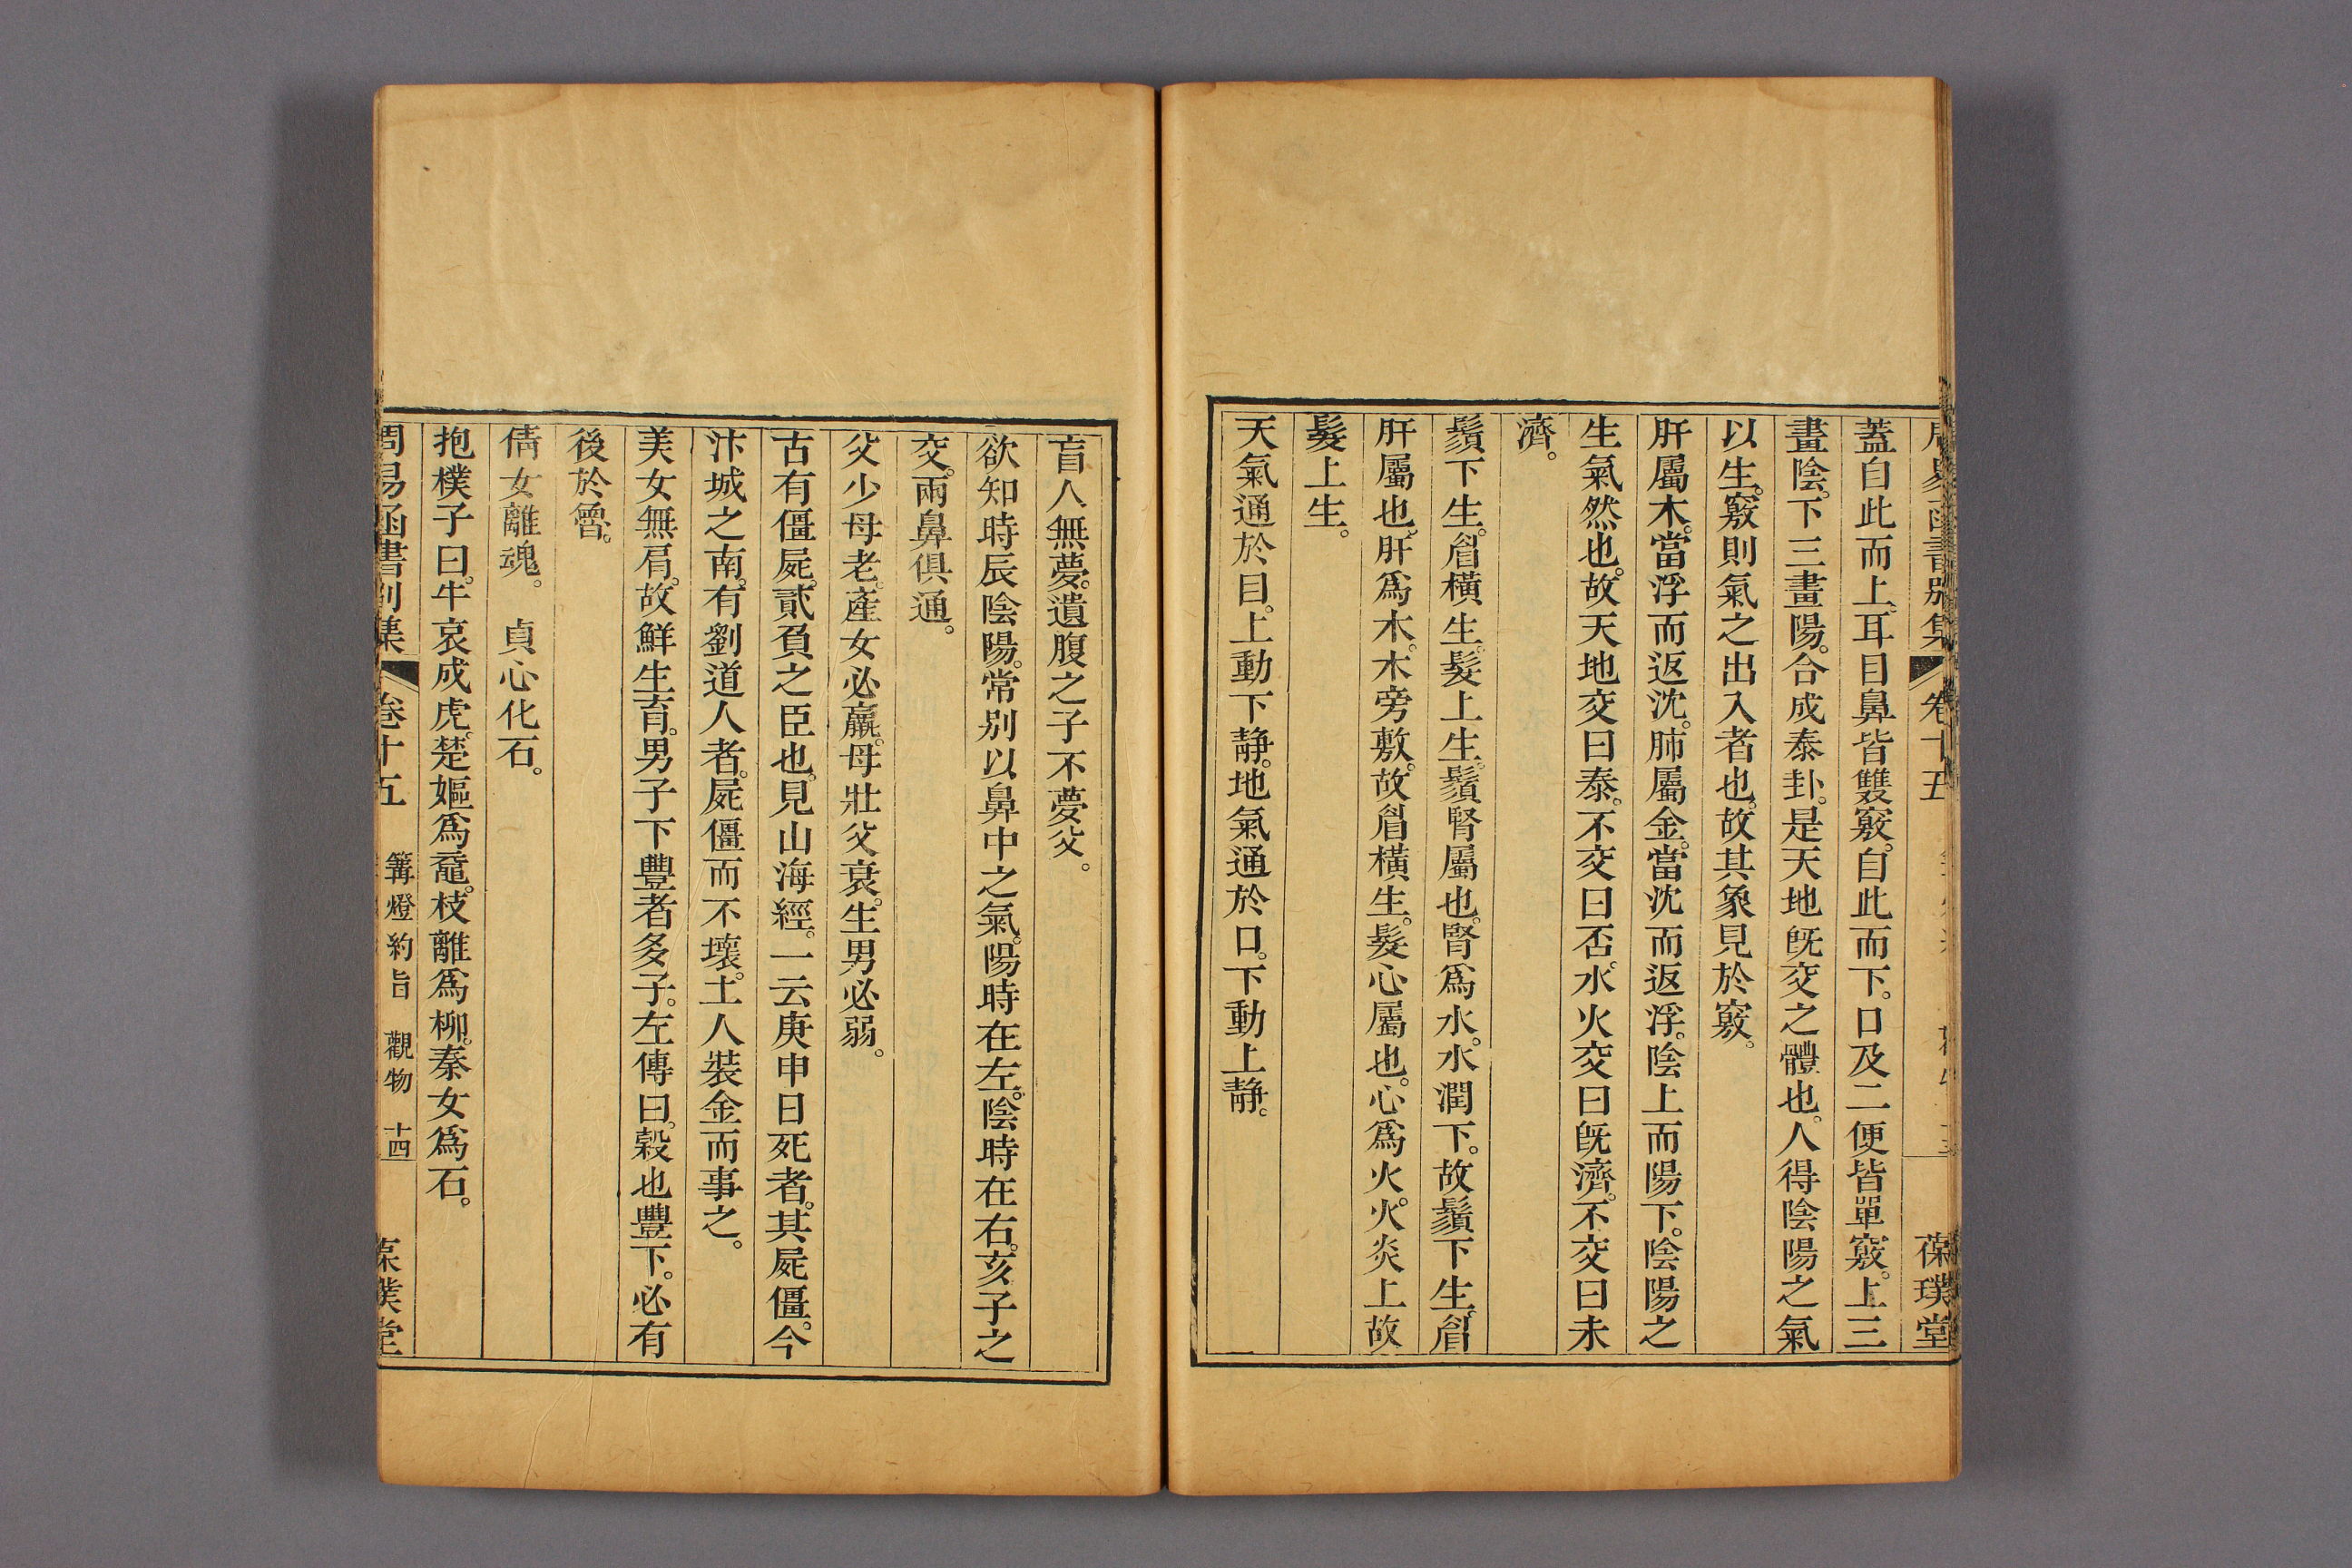 周易函書別集 卷十五 葆璞堂
蓋自此而上。耳目鼻皆雙竅。自此而下。口及二便皆單竅。上三
畫陰。下三畫陽。合成泰卦。是天地旣交之體也。人得陰陽之氣
以生。竅則氣之出入者也。故其象見於竅。
肝屬木。當浮而返沈。肺屬金。當沈而返浮。陰上而陽下。陰陽之
生氣然也。故天地交曰泰。不交曰否。水火交曰旣濟。不交曰未
濟。
鬚下生。眉橫生。髮上生。鬚腎屬也。腎爲水。水潤下。故鬚下生。眉
肝屬也。肝爲木。木旁敷。故眉橫生。髮心屬也。心爲火。火炎上故
髮上生。
天氣通於目。上動下靜。地氣通於口。下動上靜。
盲人無夢。遺腹之子不夢父。
欲知時辰陰陽。常别以鼻中之氣。陽時在左。陰時在右。亥子之
交。兩鼻俱通。
父少母老。產女必羸。母壯父衰。生男必弱。
古有僵屍。貳負之臣也。見山海經。一云庚申日死者。其屍僵。今
汴城之南。有劉道人者。屍僵而不壞。土人裝金而事之。
美女無肩。故鮮生育。男子下豐者多子。左傳曰。穀也豐下。必有
後於魯。
倩女離魂。 貞心化石。
抱樸子曰。牛哀成虎。楚嫗爲黿。枝離爲柳。秦女爲石。
周易函書别集 卷十五 篝燈約旨 觀物 十四 葆璞堂